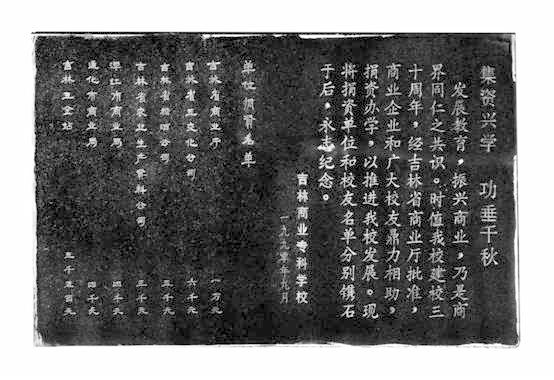 集资兴学 功垂千秋
发展教育，振兴商业，乃是商
界同仁之共识。时值我校建校三
十周年，经吉林省商业厅批准，
商业企业和广大校友鼎力相助，
捐资办学，以推进我校发展。现
将捐资单位和校友名单分别镌石
于后，永志纪念。
吉林商业专科学校
一九九零年九月
单位捐资名单
吉林省商业厅 一万元
吉林省五交化公司 六千元
吉林省糖酒公司 五千元
吉林省农业生产资料公司 三千元
浑江市商业局 四千元
通化市商业局 四千元
吉林五金站